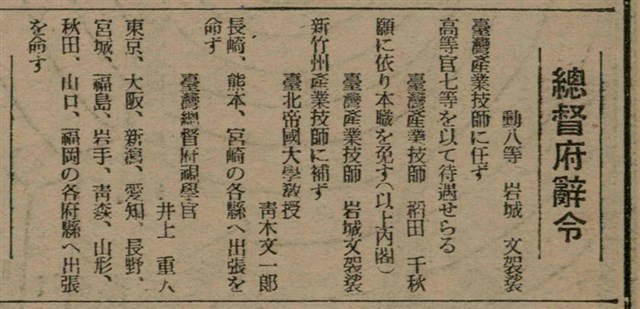 總督府辭令
勳八等　岩城　文袈裟
臺灣產業技師に任ず
高等官七等を以て待遇せらる
臺灣產業技師　稻田　千秋
願に依り本職を免ず（以上內閣）
臺灣產業技師　岩城文袈裟
新竹州產業技師に補ず
臺北帝國大學敎授
靑木文一郞
長崎、熊本、宮崎の各縣へ出張を
命ず
臺灣總督府視學官
井上　重人
東京、大阪、新潟、愛知、長野、
宮城、福島、岩手、靑森、山形、
秋田、山口、福岡の各府縣へ出張
を命ず